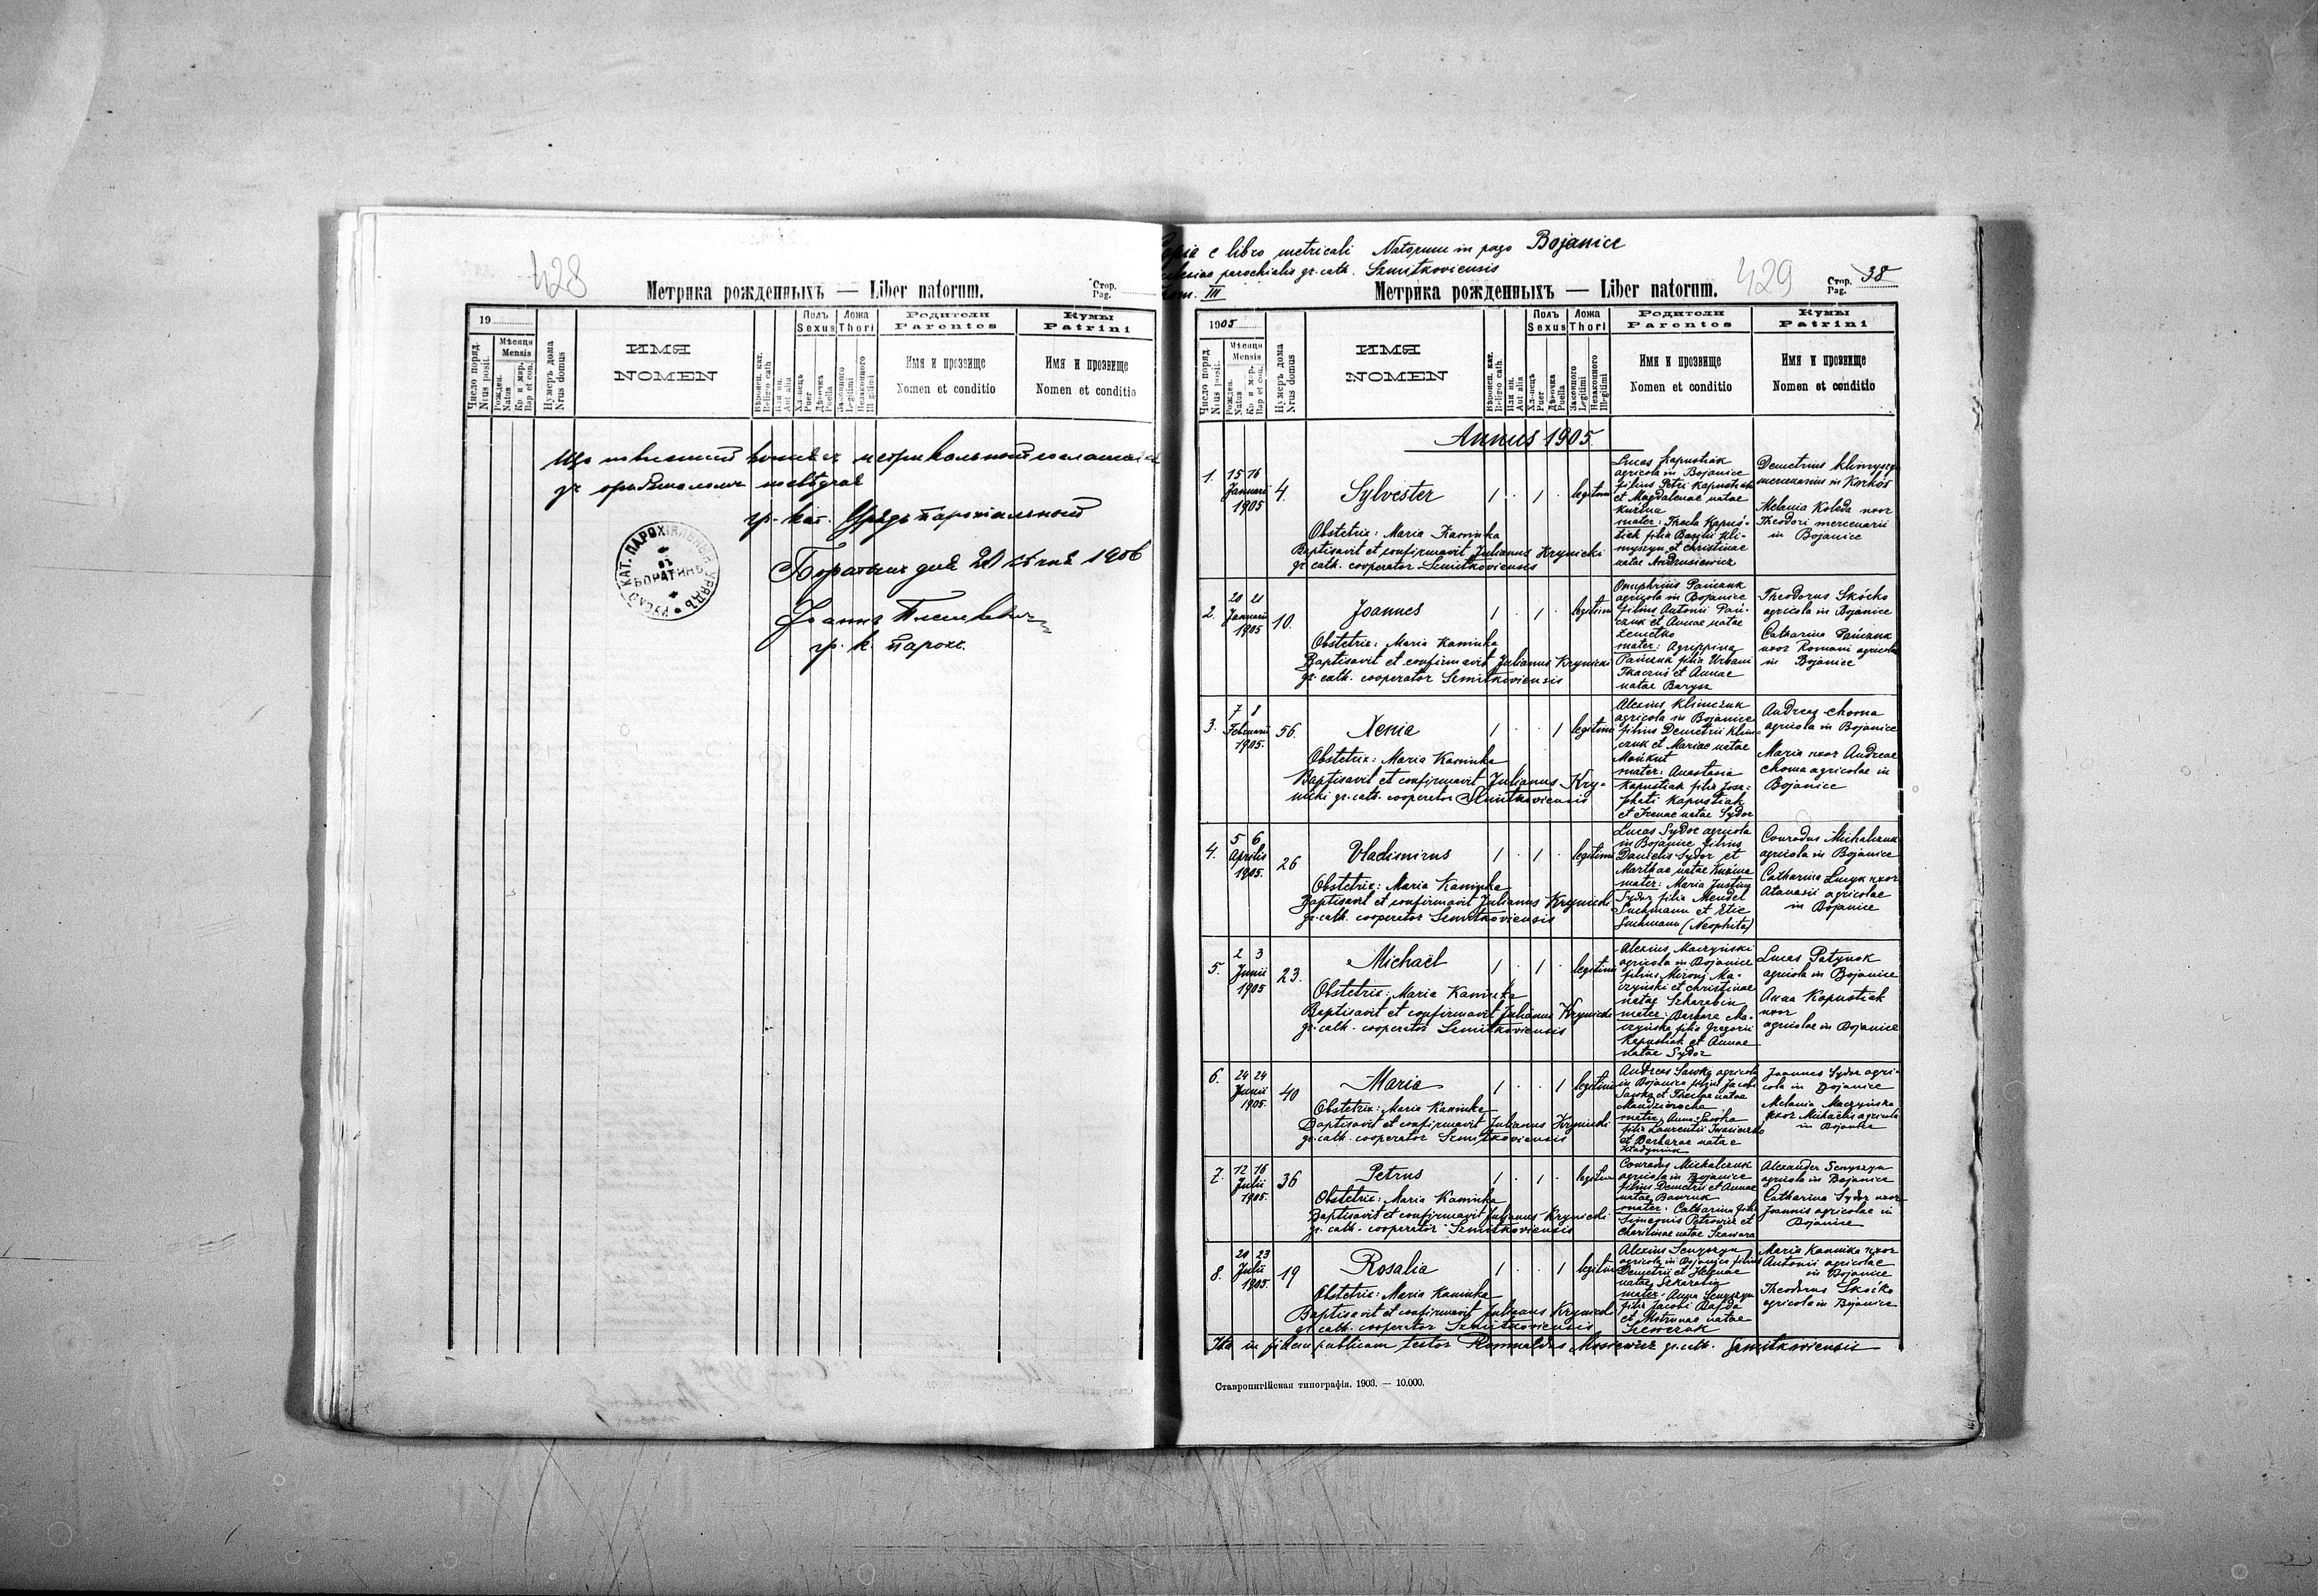 428
Метрика рожденныхъ — Liber natorum.
Стор.
Pag.
19
Число поряд.
Nrus posit.
Мѣсяця
Mensis
Рожден.
Natus
Кр. и мир.
Bap et con.
Нумеръ дома
Nrus domus
ИМЯ
NOMEN
Вѣроисп. кат.
Religio cath.
Или ин.
Aut alia
Полъ
Sexus
Хлопецъ
Puer
Дѣвочка
Puella
Ложа
Thori
Законного
Legitimi
Незаконного
Illegitimi
Родители
Parentes
Имя и прозвище
Nomen et conditio
Кумы
Patrini
Имя и прозвище
Nomen et conditio
гр. кат. Урядъ парохіальный
РУСКО КАТ. ПАРОХІЯЛЬНЫЙ УРЯДЪ
ВЪ
БОРАТИНѢ
Боратинъ дня 20 1906
Іоаннъ
гр. к. парох.
Copia e libro metricali Natorum in pago Bojanice
ecclesiae parochialis gr. cath. Szmitkoviensis
Tom. III
Метрика рожденныхъ — Liber natorum.
429
Стор.
Pag.
38
1905
Число поряд.
Nrus posit.
Мѣсяця
Mensis
Рожден.
Natus
Кр. и мир.
Bap et con.
Нумеръ дома
Nrus domus
ИМЯ
NOMEN
Вѣроисп. кат.
Religio cath.
Или ин.
Aut alia
Полъ
Sexus
Хлопецъ
Puer
Дѣвочка
Puella
Ложа
Thori
Законного
Legitimi
Незаконного
Illegitimi
Родители
Parentes
Имя и прозвище
Nomen et conditio
Кумы
Patrini
Имя и прозвище
Nomen et conditio
Annus 1905
1. 15 16 Januarii 1905 4. Sylvester 1 . 1 . legitimi
Obstetrix: Maria Kaminka
Baptisavit et confirmavit Julianus Krynicki
gr. cath. cooperator Szmitkoviensis
Lucas Kapustiak
agricola in Bojanice
filius Petri Kapustiak
et Magdalenae natae
Kuźma
mater: Thecla Kapu-
stiak filia Basilii Kli-
myszyn et Christinae
natae Andrusiewicz
Demetrius Klimyszyn
mercenarius in Korków
Melania Koleda uxor
Theodori mercenarii
in Bojanice
2. 20 21 Januarii 1905 10. Joannes 1 . 1 . legitimi
Obstetrix: Maria Kaminka
Baptisavit et confirmavit Julianus Krynicki
gr. cath. cooperator Szmitkoviensis
Onuphrius Pańczuk
agricola in Bojanice
filius Antonii Pań-
czuk et Annae natae
Zemetko
mater: Agrippina
Pańczuk filia Urbani
Tkaczus et Annae
natae Barysz
Theodorus Skócko
agricola in Bojanice
Catharina Pańczuk
uxor Romani agricolae
in Bojanice
3. 7 8 Februarii 1905. 56. Xenia 1 . . 1 legitimi
Obstetrix: Maria Kaminka
Baptisavit et confirmavit Julianus Kry-
nicki gr. cath. cooperator Szmitkoviensis
Alexius Klimczuk
agricola in Bojanice
filius Demetrii Klim-
czuk et Mariae natae
mater: Anastasia
Kapustiak filia Josa-
phati Kapustiak
et Irenae natae Sydor
Andreas Choma
agricola in Bojanice
Maria uxor Andreae
Choma agricolae in
Bojanice
4. 5 6 Aprilis 1905. 26 Vladimirus 1 . 1 . legitimi
Obstetrix: Maria Kaminka
Baptisavit et confirmavit Julianus Krynicki
gr. cath. cooperator Szmitkoviensis
Lucas Sydor agricola
in Bojanice filius
Danielis Sydor et
Marthae natae Kuźma
mater: Maria Justina
Sydor filia Mendel
Suchmann et Etie
Suchmann (Neophita)
Conradus Michalczuk
agricola in Bojanice
Catharina Lucyk uxor
Atanasii agricolae
in Bojanice
5. 2 3 Junii 1905 23. Michaël 1 . 1 . legitimi
Obstetrix: Maria Kaminka
Baptisavit et confirmavit Julianus Krynicki
gr. cath. cooperator Szmitkoviensis
Alexius Maczyński
agricola in Bojanice
filius Mironi Ma-
czyński et Christinae
natae Szharabin
mater: Barbara Ma-
czyńska filia Gregorii
Kapustiak et Annae
natae Sydor
Lucas Patynok
agricola in Bojanice
Anna Kapustiak
uxor
agricolae in Bojanice
6. 24 24 Junii 1905. 40 Maria 1 . . 1 legitimi
Obstetrix: Maria Kaminka
Baptisavit et confirmavit Julianus Krynicki
gr. cath. cooperator Szmitkoviensis
Andreas Sawka agricola
in Bojanice filius Jacobi
Sawka et Theclae natae
mater: Anna Sawka
filia Laurentii Iwasieczko
et Barbarae natae
Joannes Sydor agri-
cola in Bojanice
Melania Maczyńska
uxor Michaelis agricola
in Bojanice
7. 12 16 Julii 1905. 36 Petrus 1 . 1 . legitimi
Obstetrix: Maria Kaminka
Baptisavit et confirmavit Julianus Krynicki
gr. cath. cooperator Szmitkoviensis
Conradus Michalczuk
agricola in Bojanice
filius Demetrii et Annae
natae Bawruk
mater: Catharina filia
Simeonis Petrowicz et
Charitinae natae Szawara
Alexander Senyszyn
agricola in Bojanice
Catharina Sydor uxor
Joannis agricolae in
Bojanice
8. 20 23 Julii 1905. 19 Rosalia 1 . . 1 legitimi
Obstetrix: Maria Kaminka
Baptisavit et confirmavit Julianus Krynicki
gr. cath. cooperator Szmitkoviensis
Alexius Senyszyn
agricola in Bojanice filius
Demetrii et Helenae
natae Szkarabin
mater: Anna Senyszyn
filia Jacobi Bajda
et Motrunae natae
Szewczuk
Maria Kaminka uxor
Antonii agricolae
in Bojanice
Theodorus Skócko
agricola in Bojanice
Ita in fidem publicam testor Romualdus Mosiewicz gr. cath. Szmitkoviensis
Ставропигійская типографія. 1903. — 10.000.